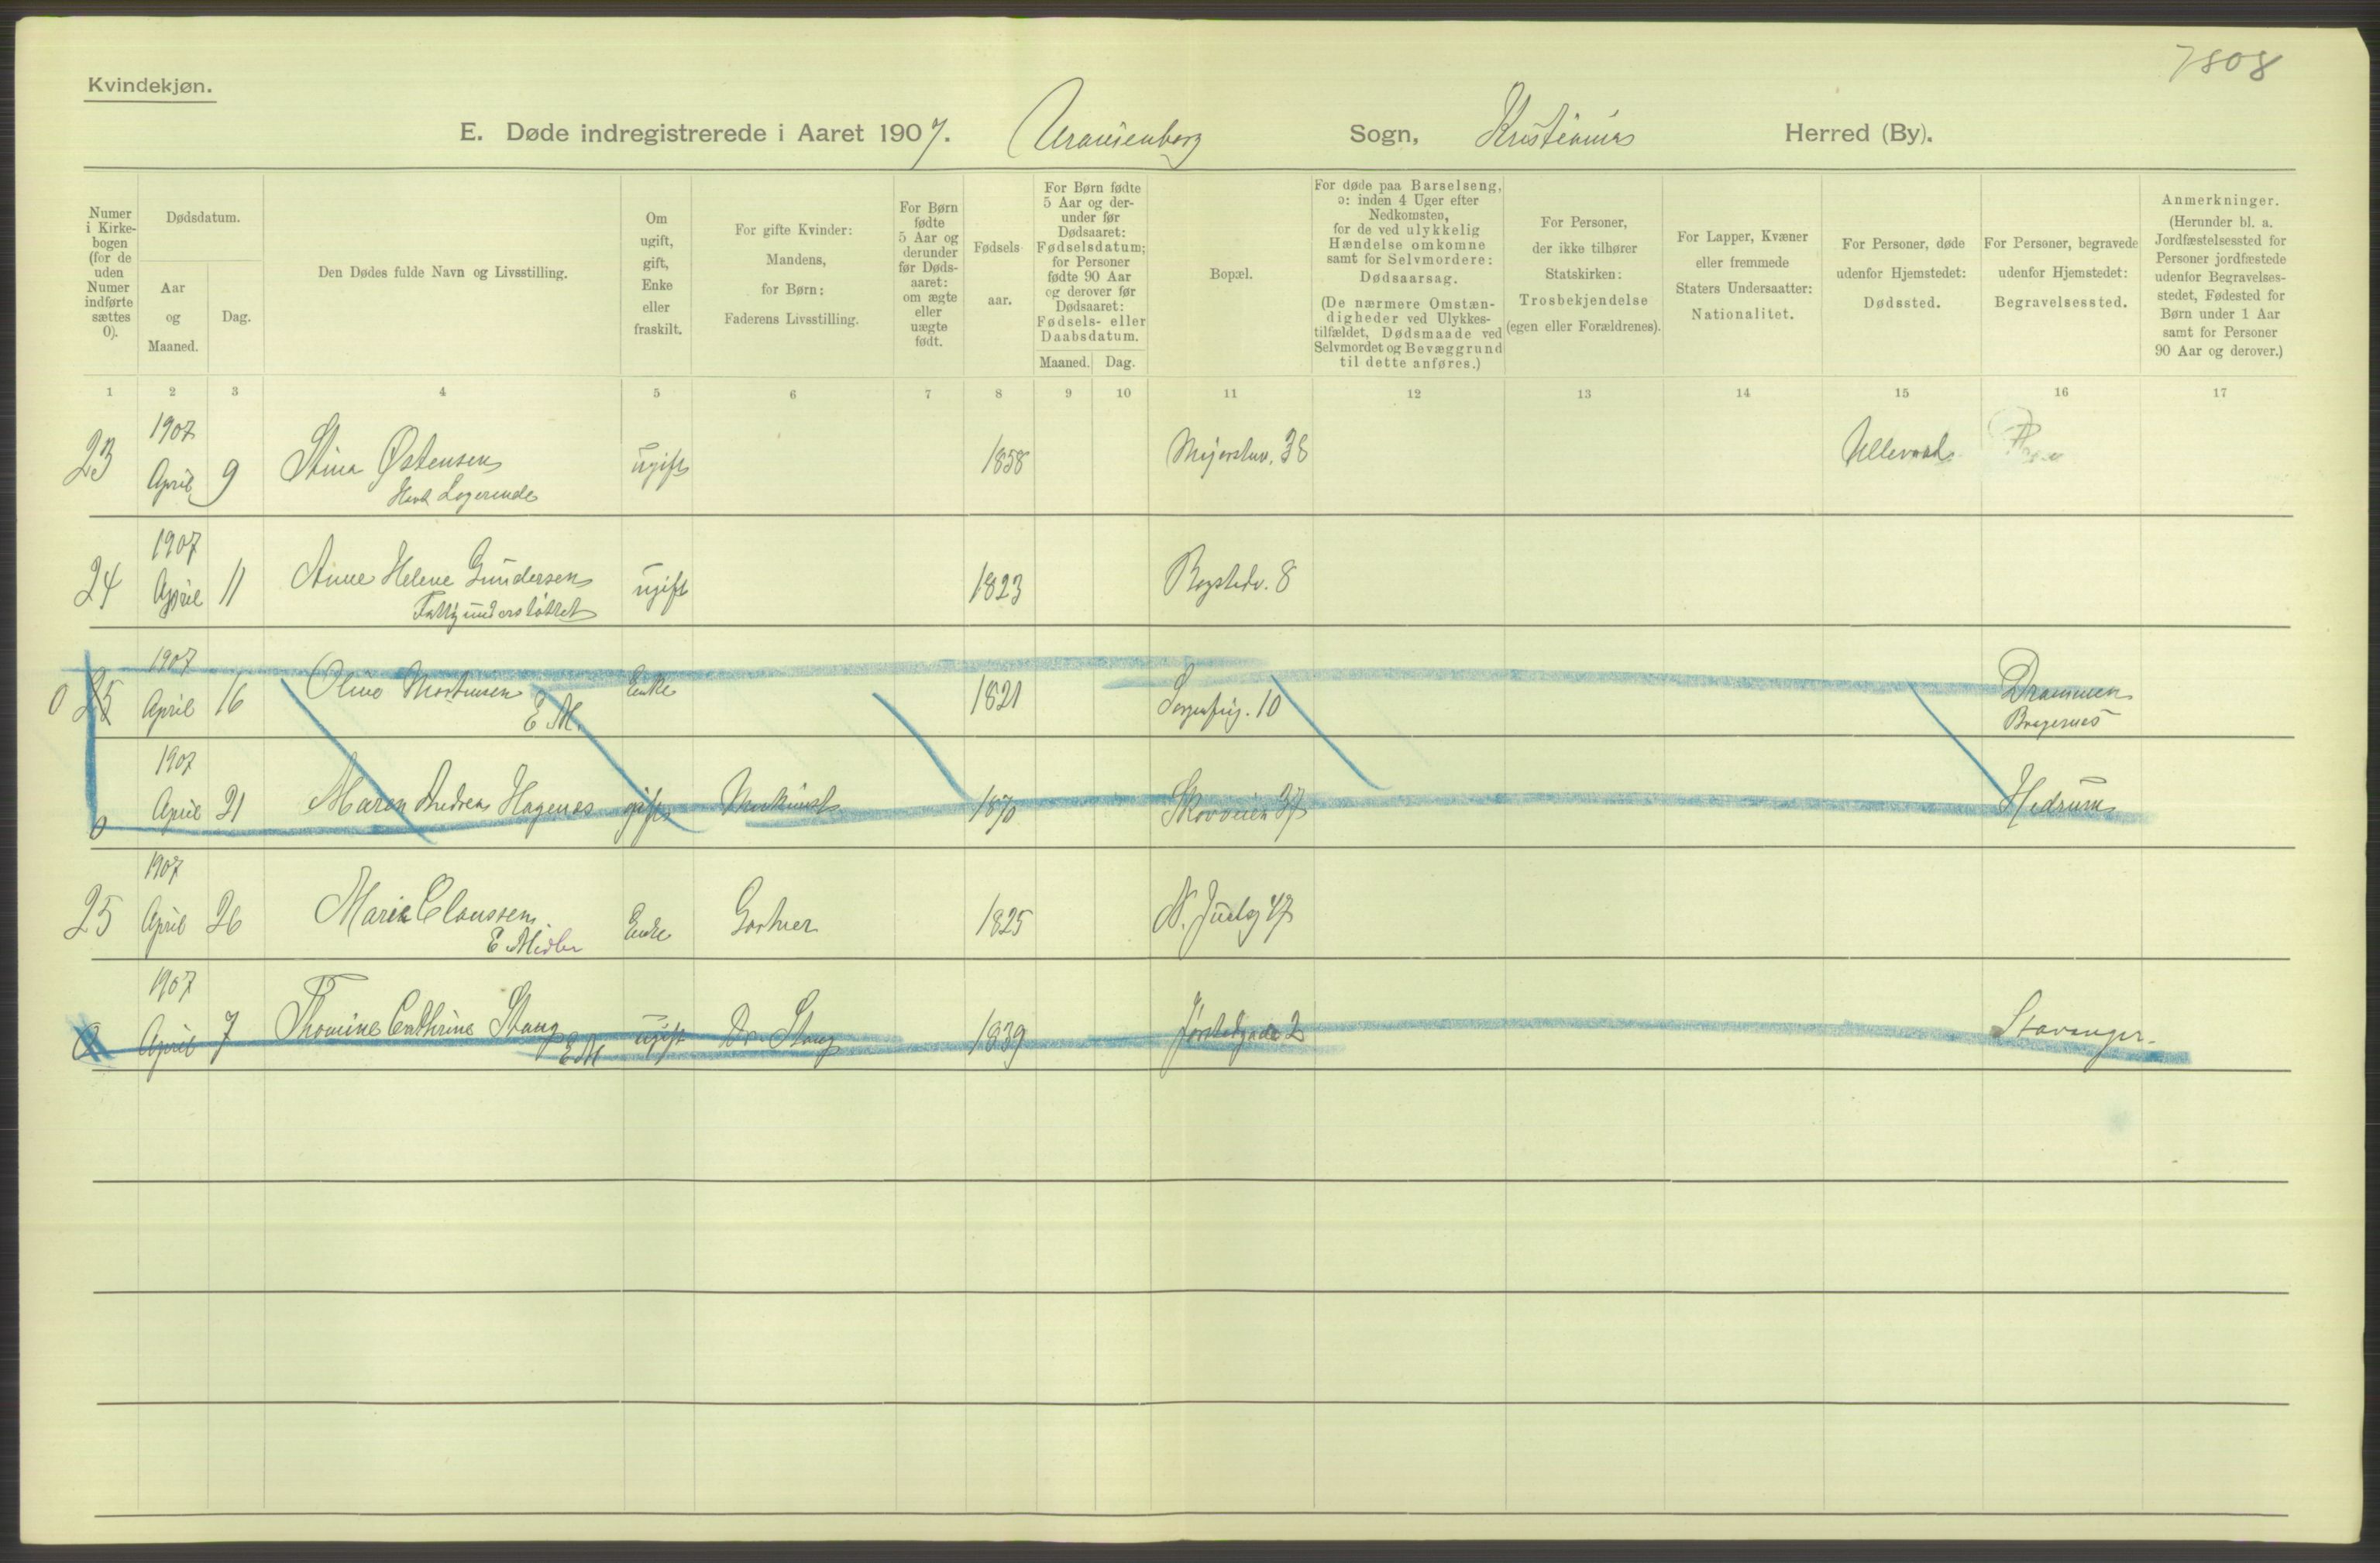 7808
Kvindekjøn.
E. Døde indregistrerede i Aaret 1907. Uranienborg Sogn, Kristiania Herred (By).
Numer i Kirke-bogen (for de uden Numer indførte sættes 0).
Dødsdatum.
Aar og Maaned.
Dag.
Den Dødes fulde Navn og Livsstilling.
Om ugift, gift, Enke eller fraskilt.
For gifte Kvinder: Mandens, for Børn: Faderens Livsstilling.
For Børn fødte 5 Aar og derunder før Døds-aaret: om ægte eller uægte født.
Fødsels-aar.
For Børn fødte 5 Aar og der-under før Dødsaaret: Fødselsdatum; for Personer fødte 90 Aar og derover før Dødsaaret: Fødsels- eller Daabsdatum.
Maaned. Dag.
Bopæl.
For døde paa Barselseng, ɔ: inden 4 Uger efter Nedkomsten, for de ved ulykkelig Hændelse omkomne samt for Selvmordere: Dødsaarsag.
(De nærmere Omstæn-digheder ved Ulykkes-tilfældet, Dødsmaade ved Selvmordet og Bevæggrund til dette anføres.)
For Personer, der ikke tilhører Statskirken: Trosbekjendelse (egen eller Forældrenes).
For Lapper, Kvæner eller fremmede Staters Undersaatter: Nationalitet.
For Personer, døde udenfor Hjemstedet: Dødssted.
For Personer, begravede udenfor Hjemstedet: Begravelsessted.
Anmerkninger. (Herunder bl. a. Jordfæstelsessted for Personer jordfæstede udenfor Begravelses-stedet, Fødested for Børn under 1 Aar samt for Personer 90 Aar og derover.)
1 2 3 4 5 6 7 8 9 10 11 12 13 14 15 16 17
23 1907 April 9 Stina Østensen ugift 1858 Majorstuv. 38 Ullevaal
Logerende
24 1907 April 11 Anne Helene Gundersen ugift 1823 Bogstadv. 8
Fattigunderstøttet
0 25 1907 April 16 Oline Mortensen Enke 1821 Sorgenfrig. 10 Drammen
E M. Bragernes
0 1907 April 21 Maren Andrea Hagenes gift 1870 Skovveien 37 Hedrum
25 1907 April 26 Marie Claussen Enke Gartner 1825 N. Juelsg 47
E. Midler
0 1907 April 7 Thomine Cathrine Stang ugift Dr. Stang 1839 Stavanger.
E M